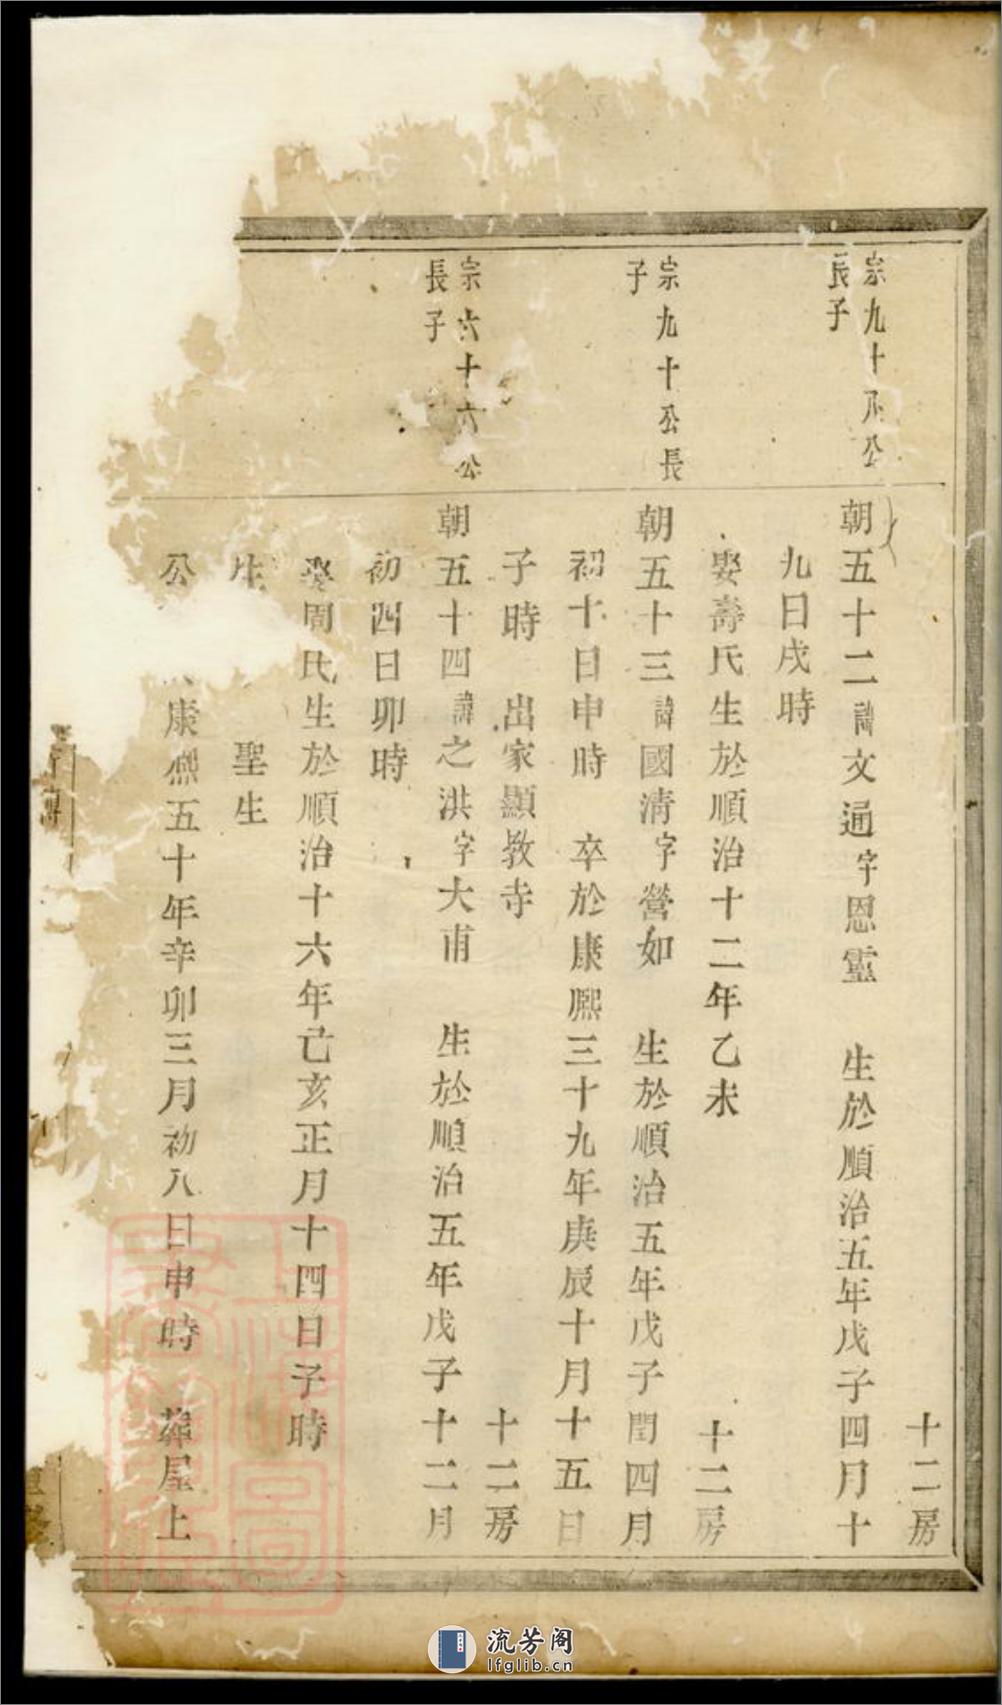 十二房
宗九十八公
長子
朝五十二諱文通字恩靈 生於順治五年戊子四月十
九日戌時
娶壽氏生於順治十二年乙未 十二房
宗九十公長
子
朝五十三諱國清字營如 生於順治五年戊子閏四月
初十日申時 卒於康熙三十九年庚辰十月十五日
子時 出家顯教寺 十二房
宗六十六公
長子
朝五十四諱之洪字大甫 生於順治五年戊子十二月
初四日卯時
娶周氏生於順治十六年亡亥正月十四日子時
生 聖生
公 康熙五十年辛卯三月初八日申時 葬屋上
流芳阁
lfglib.cn